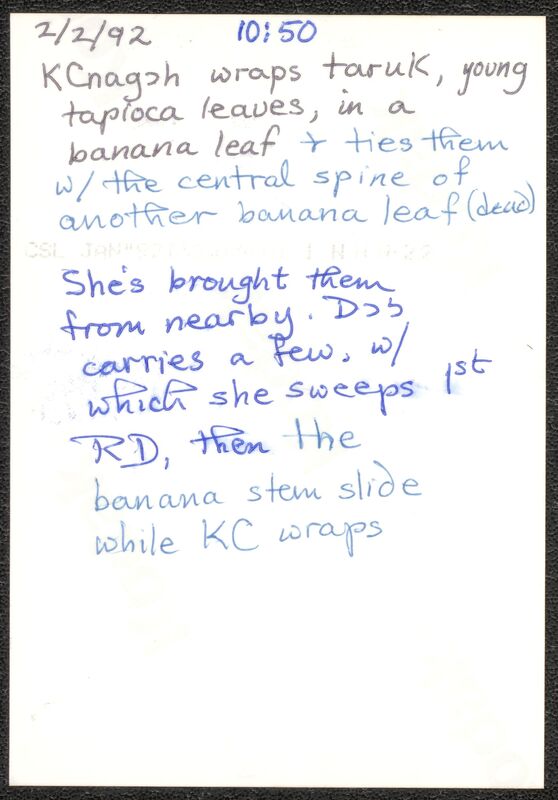 2/2/92 10:50
KCnagɔh wraps taruk, young
tapioca leaves, in a
banana leaf + ties them
w/ the central spine of
another banana leaf (dead)
She's brought them
from nearby. Dɔɔ
carries a few, w/
which she sweeps 1st
RD, then the
banana stem slide
while KC wraps